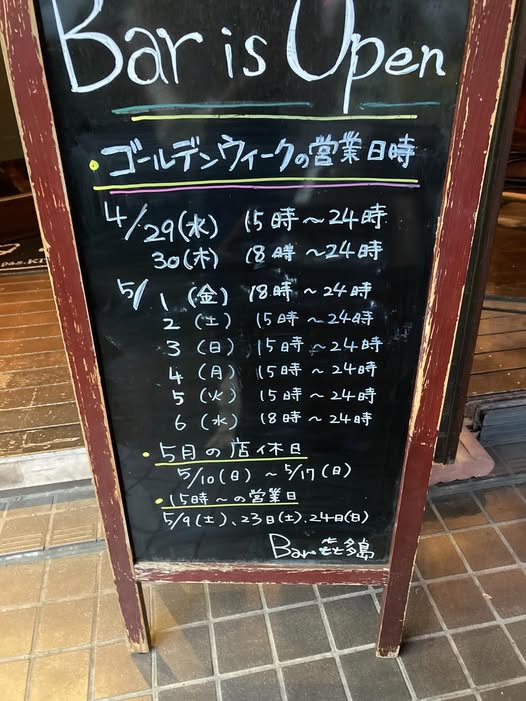 Bar is Open
・ゴールデンウィークの営業日時
4/29(水) 15時～24時
30(木) 18時～24時
5/1(金) 18時～24時
2(土) 15時～24時
3(日) 15時～24時
4(月) 15時～24時
5(火) 15時～24時
6(水) 18時～24時
・5月の店休日
5/10(日)～5/17(日)
・15時～の営業日
5/9(土)、23日(土)、24日(日)
Bar 㐂多島